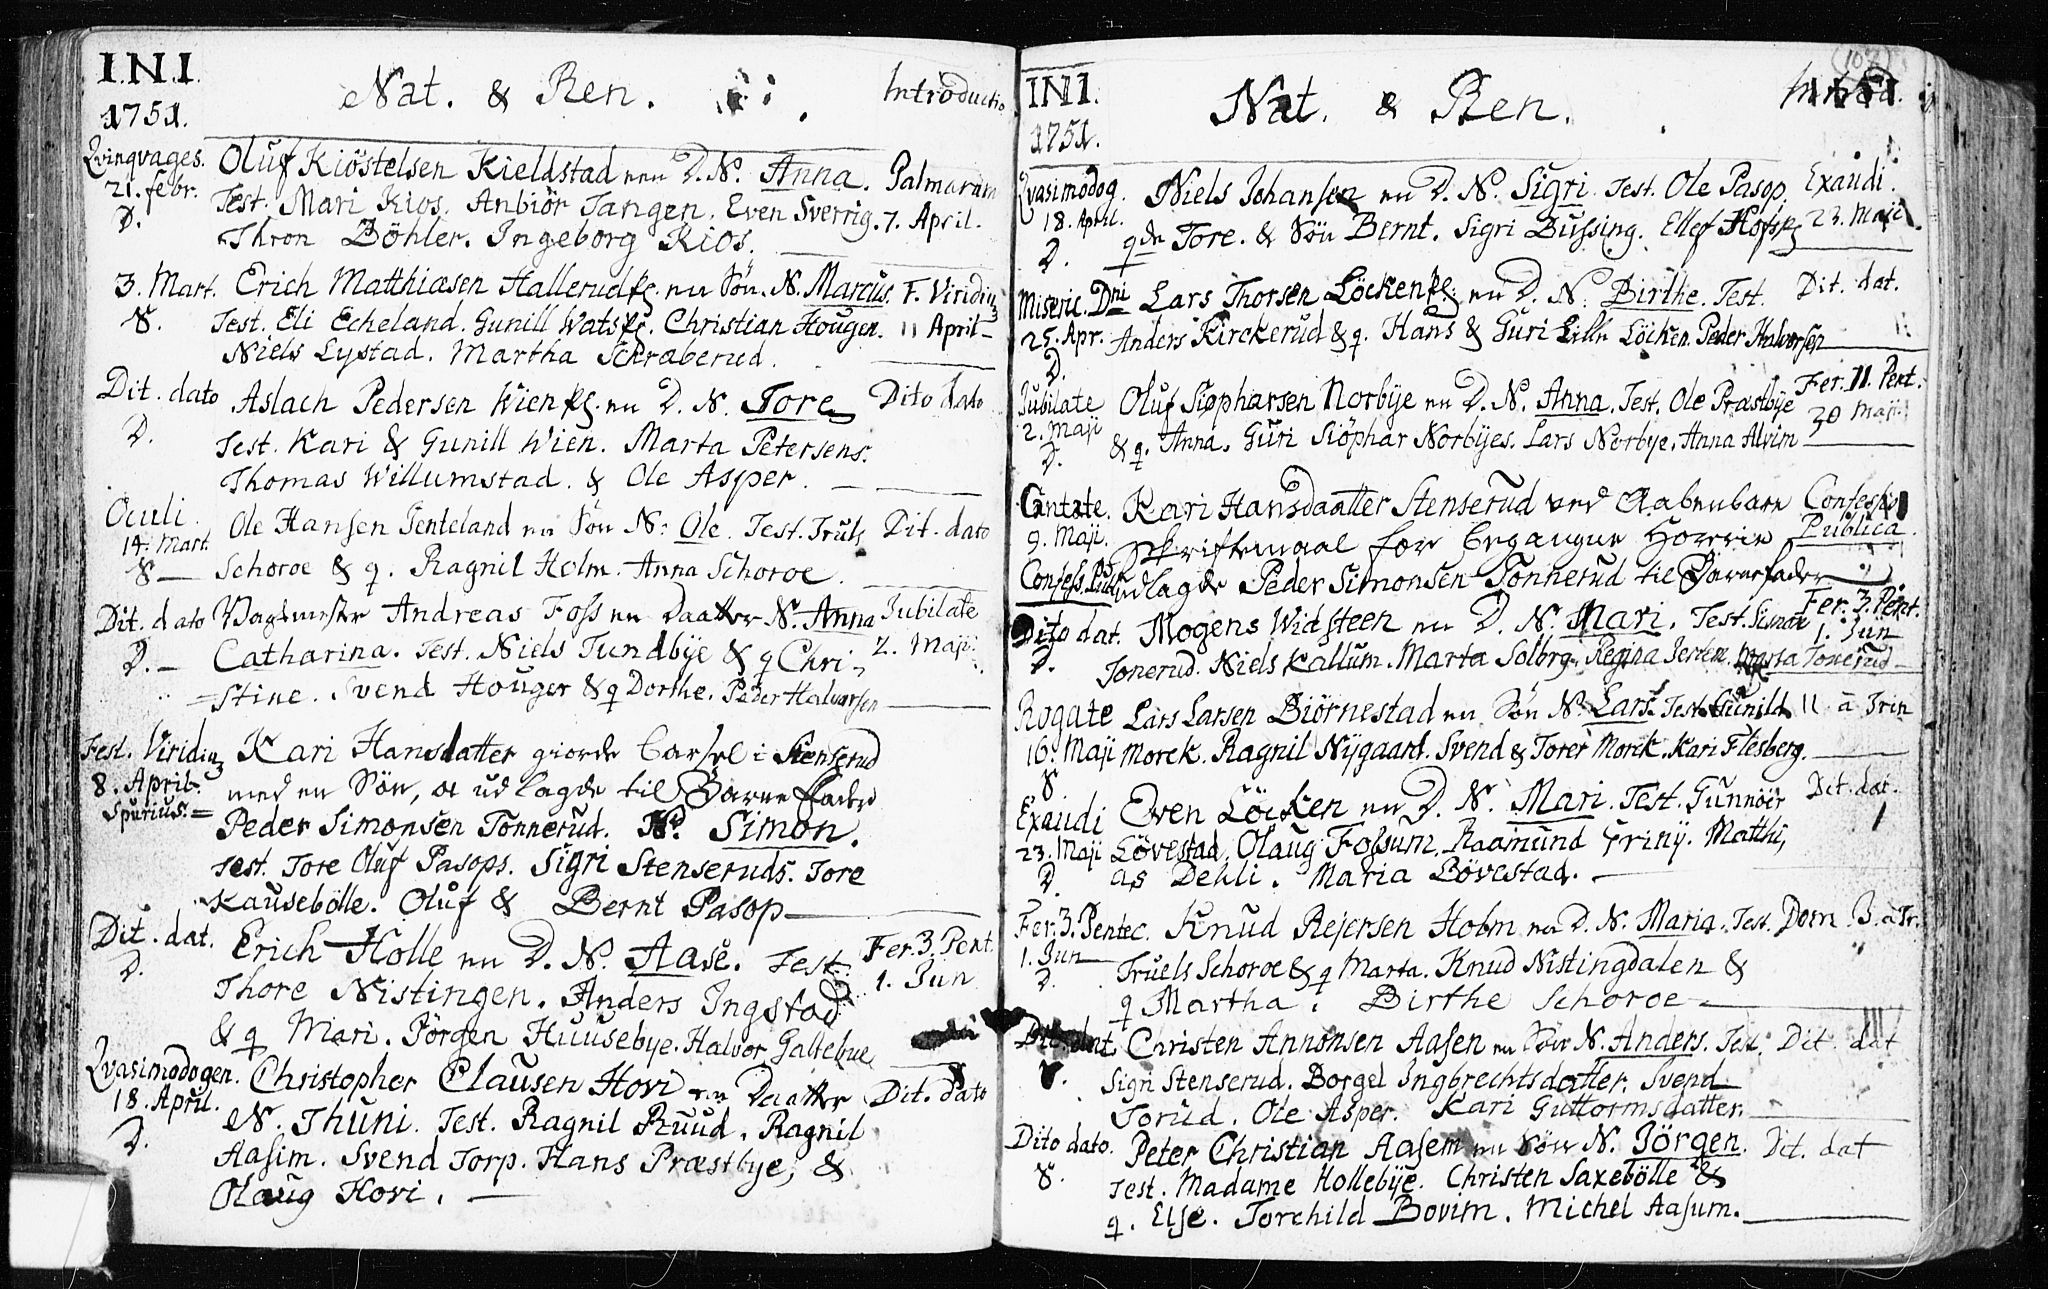 I.N.I.
1751.
Nat. & Ren.
Introductio
Qvinqvages.
21. febr.
D.
Oluf Kiöstelsen Kieldstad nen D. N. Anna.
Test. Mari Kios. Anbiör Tangen. Even Sverrig.
Thron Böhler. Ingeborg Kios.
Palmarum
7. April.
3. Mart.
S.
Erich Matthiæsen Hallerud en Sön. N. Marcus.
Test. Eli Echeland. Gunill Wats. Christian Hougen.
Niels Lystad. Martha Schraberud.
F. Viridium
11 April
Dit. dato
D.
Aslach Pedersen Wien en D. N. Tore
Test. Kari & Gunill Wien. Marta Petersens.
Thomas Willumstad. & Ole Asper.
Dito dato
Oculi
14. Mart.
S
Ole Hansen Tenteland en Sön N: Ole. Test. Truls
Schoroe & q. Ragnil Holm. Anna Schoroe.
Dit. dato
Dit. dato
D.
Wagtmester Andreas Foss en Daatter N. Anna
Catharina. Test. Niels Tundbye & q Chri
stine. Svend Houger & q Dorthe. Peder Halvorsen
Iubilate
2. Maji
Fest. Viridiu
8. April.
Spurius.
Kari Hansdatter giorde Barsel i Stenserud
med en Sön, og udlagde til Barne fader
Peder Simonsen Tonnerud. N. Simon.
Test. Tore Oluf Pasops. Sigri Stenseruds. Tore
Kausebölle. Oluf & Bernt Pasop
Dit. dat.
D.
Erich Holle en D. N. Aase. Test.
Thore Nistingen. Anders Ingstad
& q Mari. Jörgen Huusebye. Halvor Galtebue
Fer. 3. Pent.
1. Jun
Qvasimodogen.
18. April.
D.
Christopher Clausen Hovi en Daatter
N. Thuni. Test. Ragnil Ruud. Ragnil
Aasim. Svend Torp. Hans Præstbye, &
Olaug Hovi.
Dit. dato
INI.
1751.
Nat. & Ren.
Introd.
(107)
Qvasimodog.
18. April.
D.
Niels Johansen en D. N. Sigri. Test. Ole Pasop.
qde Tore. & Sön Bernt. Sigri Bussing. Ellef Hofs
Exaudi.
23. Maji
Miseric. Dni
25. Apr.
D.
Lars Thorsen Löcken en D. N. Birthe. Test.
Anders Kirckerud & q. Hans & Guri Lille Löcken. Peder Halvorsen
Dit. dat.
Jubilate
2. Maji
D.
Oluf Siöpharsen Norbye en D. N. Anna. Test. Ole Præstbye
& q. Anna. Guri Siöphar Norbyes. Lars Norbye. Anna Alvim
Fer. II. Pent.
30 Maji
Cantate.
9. Maji.
Confess. Pub
Kari Hansdaatter Stenserud ved Aabenbare
Skriftemaal for begangne Horerie
udlagde Peder Simonsen Tonnerud til Barnefader
Confessio
Publica.
Dito dat.
D.
Mogens Widsteen en D. N. Mari. Test. Simon
Tonerud. Niels Kallum. Marta Solbrg. Regina Marta Tonerud
Fer. 3. Pent.
1. Jun
Rogate
16. Maji
S.
Lars Larsen Biörnestad en Sön N. Lars. Test. Gunild
Morck. Ragnil Nygaard. Svend & Torer Morck. Kari Flesberg.
11 a Trin
Exaudi
23. Maji
D.
Even Löcken en D. N. Mari. Test. Gunnöer
Lövestad. Olaug Folsum. Raamund Griny. Matthi,
as Dehli. Maria Bövestad.
Dit. dat.
Fer. 3. Pentec.
1. Jun
D.
Knud Rejersen Holm en D. N. Maria. Test.
Truels Schoroe & q Marta. Knud Nistingdalen &
q Martha. Birthe Schoroe
Dom. 3. a Tr.
Dit. dat.
S.
Christen Annonsen Aasen en Sön N. Anders. Test.
Sigri Stenserud. Borgel Ingbrechtsdatter. Svend
Torud. Ole Asper. Kari Guttormsdatter.
Dit. dat
Dito dato.
S.
Peter Christian Aasem en Sön N. Jörgen.
Test. Madame Hollebye. Christen Saxebölle &
q. Else. Torchild Bovim. Michel Aasum.
Dit. dat